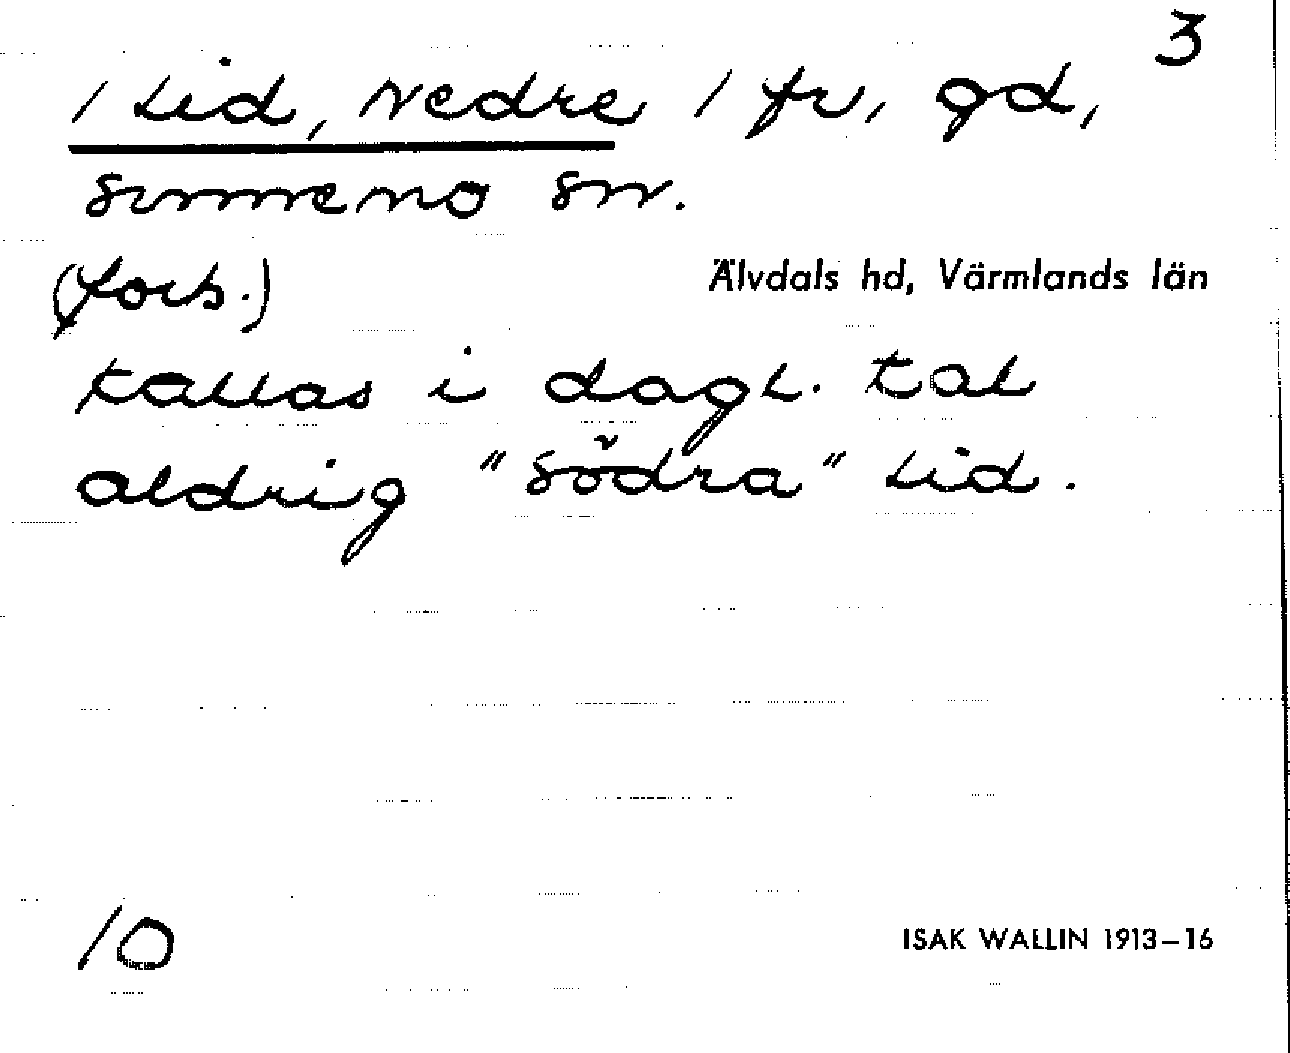 3
1 Lid, Nedre 1 fr, gd,
Sunnemo sn.
(forts.)
Älvdals hd, Värmlands län
kallas i dagl. tal
aldrig "södra" Lid.
10
ISAK WALLIN 1913–16